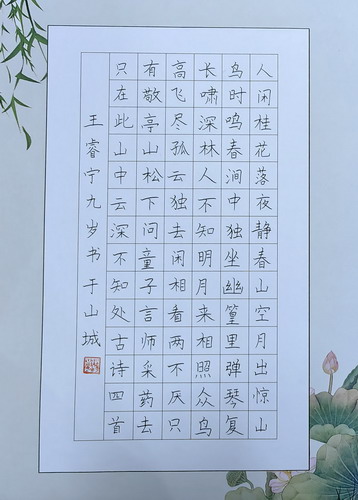 人闲桂花落夜静春山空月出惊山
鸟时鸣春涧中独坐幽篁里弹琴复
长啸深林人不知明月来相照众鸟
高飞尽孤云独去闲相看两不厌只
有敬亭山松下问童子言师采药去
只在此山中云深不知处古诗四首
王睿宁九岁书于山城